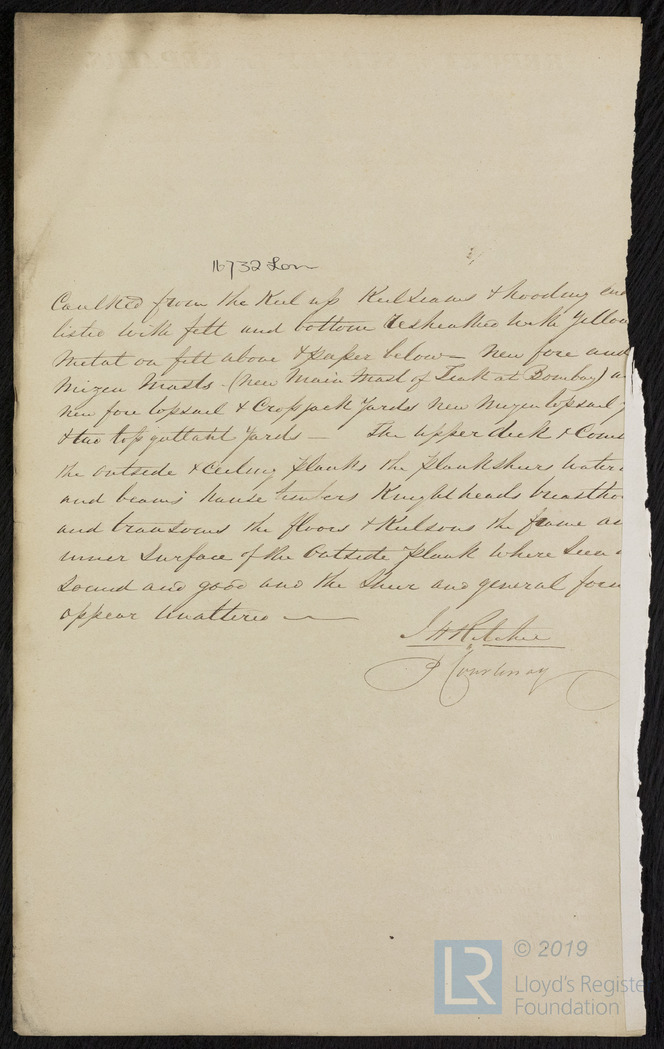 16732 Lon
Caulked from the Keel up Keelseams & hooding en
listed with felt and bottom resheathed with Yellow
Metal on felt above & paper below — New fore and
Mizen Masts - (New Main Mast of Teak at Bombay) a
New fore topsail & Crossjack Yards New Mizen topsail
& two top gallant Yards — The upper deck & Comi
the outside & ceiling planks the planksheers water
and beams hawse timbers Knightheads breastho
and transoms the floors & Keelsons the frame an
inner Surface of the Outside plank where seen
Sound and good and the Sheer and general form
appear unaltered —
J H Ritchie
P Courtenay
LR © 2019
Lloyd's Register
Foundation